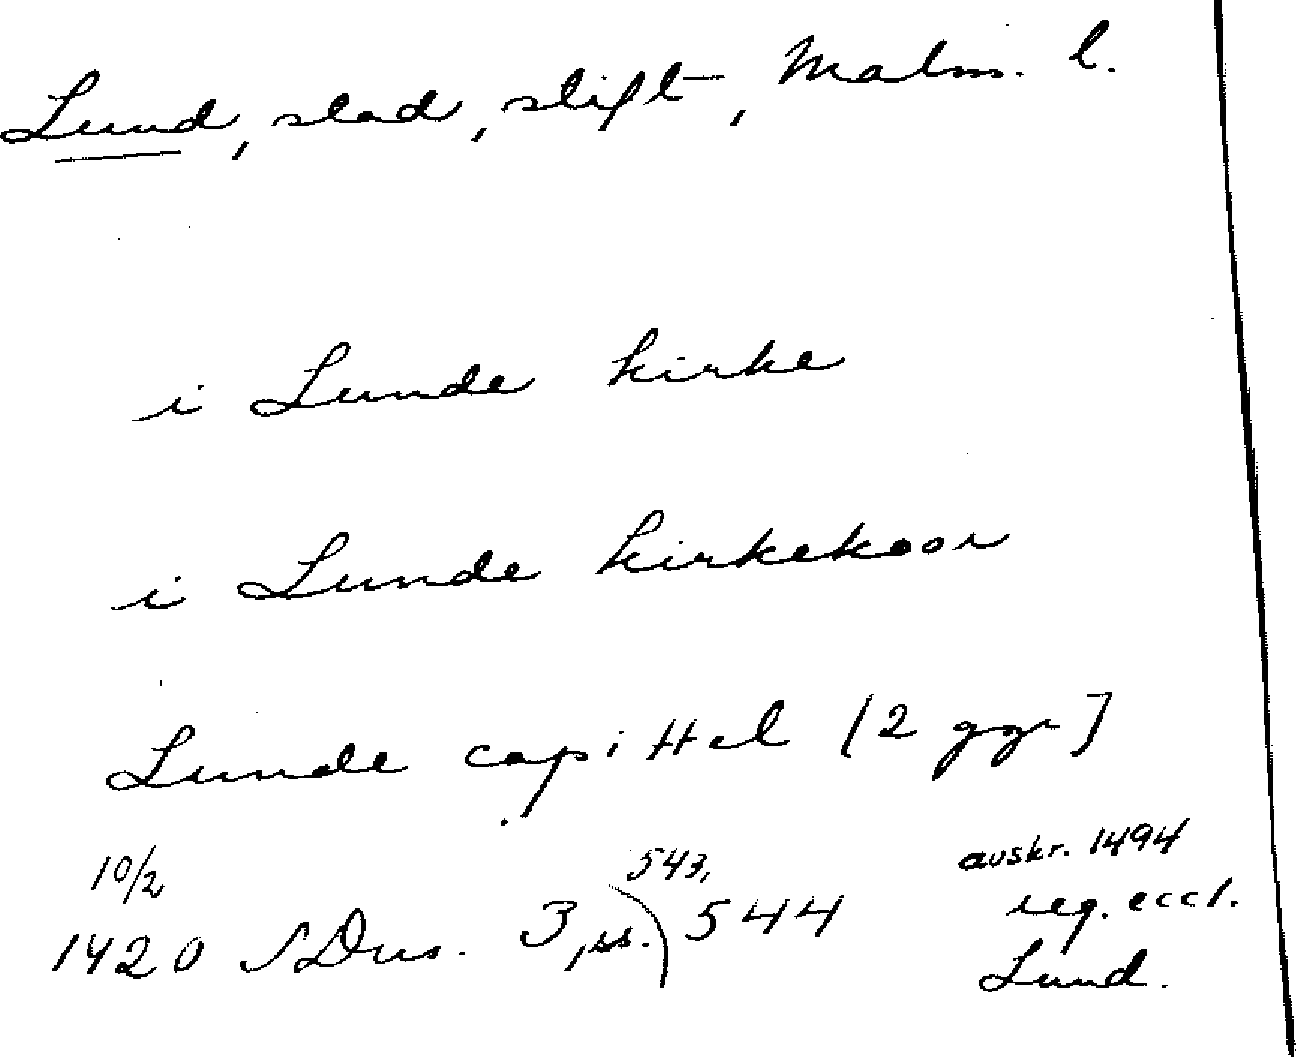 Lund, stad, stift, Malm. l.
i Lunde kirke
i Lunde kirkekoor
Lunde capittel [2 ggr]
10/2 543, avskr. 1494
1420 SDns. 3, ss. 544 reg. eccl.
Lund.